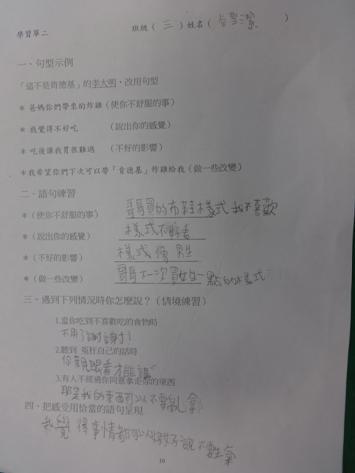 學習單二
班級（ 三 ）姓名（ ）
一、句型示例
「這不是肯德基」的李大明，改用句型
* 爸媽你們帶來的炸雞(使你不舒服的事)
* 我覺得不好吃 (說出你的感覺)
* 吃後讓我胃很難過 (不好的影響)
*我希望你們下次可以帶「肯德基」炸雞給我(做一些改變)
二、語句練習
* (使你不舒服的事) 哥哥買的布鞋樣式我不喜歡
* (說出你的感覺) 樣式不好看
* (不好的影響) 樣式像男生
* (做一些改變) 哥哥下一次買女生一點的樣式
三、遇到下列情況時你怎麼說？(情境練習)
1.當你吃到不喜歡吃的食物時
不用了謝謝
2.聽到 冤枉自己的話時
你親眼看才能講
3.有人不經過你同意拿走你的東西
那是我的東西可以不要亂拿
四、把感受用恰當的語句呈現
我覺得事情都可以好好說不要生氣
10